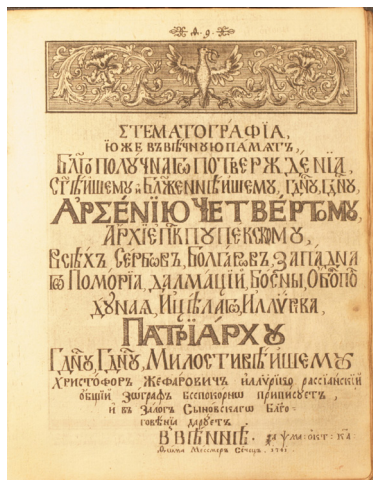 СТЕМАТОГРАФІА,
ЮЖЕ ВЪ ВѢЧНУЮ ПАМАТЬ,
БЛГОПОЛУЧНАГѠ ПОТВЕРЖДЕНІА,
СТѢЙШЕМУ И БЛАЖЕННѢЙШЕМУ, ГДНУ, ГДНУ,
АРСЕ́НІЮ ЧЕТВЕ́РТОМУ,
АРХІЕПКПУ ПЕКСКОМУ,
ВСѢХЪ СЕРБѠВЪ, БОЛГАРѠВЪ, ЗАПАДНА
ГѠ ПОМОРІА, ДАЛМАЦІЙ, БОСНЫ, ОБОНПО
ДУНАА, И ЦѢЛАГѠ ИЛЛУРІКА,
ПАТРІАРХꙊ
ГДНУ, ГДНУ, МИЛОСТИВѢЙШЕМꙊ
ХРИСТОФОРЪ ЖЕФАРОВИЧЪ ИЛЛУРІКО РАССІАНСКІЙ
ОБЩІЙ ЗѠГРАФЪ ПРИПИСУЕТЪ,
И ВЪ ЗАЛОГЪ СЫНОВСКАГѠ БЛГО-
ГОВѢНІА ДАРУЕТЪ
ВЪ ВІЕННѢ.
Месмеръ 1741